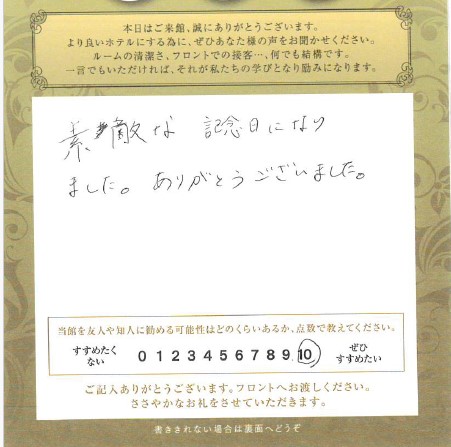 本日はご来館、誠にありがとうございます。
より良いホテルにする為に、ぜひあなた様の声をお聞かせください。
ルームの清潔さ、フロントでの接客…、何でも結構です。
一言でもいただければ、それが私たちの学びとなり励みになります。
素敵な 記念日になり
ました。ありがとうございました。
当館を友人や知人に勧める可能性はどのくらいあるか、点数で教えてください。
すすめたくない 0 1 2 3 4 5 6 7 8 9 10 ぜひすすめたい
ご記入ありがとうございます。フロントへお渡しください。
ささやかなお礼をさせていただきます。
書ききれない場合は裏面へどうぞ